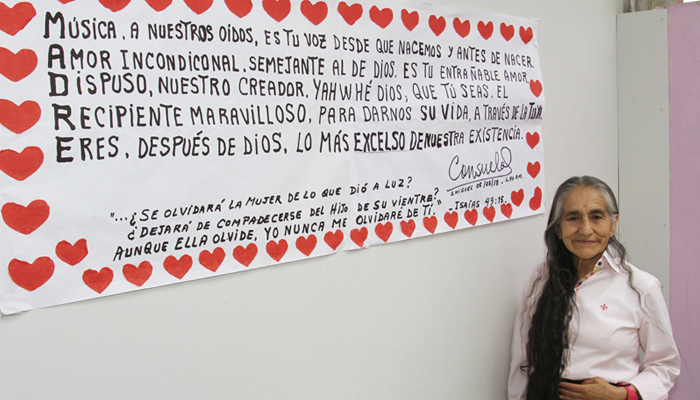 MÚSICA, A NUESTROS OÍDOS, ES TU VOZ DESDE QUE NACEMOS Y ANTES DE NACER.
AMOR INCONDICONAL, SEMEJANTE AL DE DIOS. ES TU ENTRAÑABLE AMOR.
DISPUSO, NUESTRO CREADOR. YAHWHÉ DIOS, QUE TÚ SEAS. EL
RECIPIENTE MARAVILLOSO, PARA DARNOS SU VIDA, A TRAVÉS DE LA TUYA.
ERES, DESPUÉS DE DIOS, LO MÁS EXCELSO DE NUESTRA EXISTENCIA.
Consuelo
"...¿SE OLVIDARÁ LA MUJER DE LO QUE DIÓ A LUZ?
¿DEJARÁ DE COMPADECERSE DEL HIJO DE SU VIENTRE?
AUNQUE ELLA OLVIDE, YO NUNCA ME OLVIDARÉ DE TÍ." -ISAÍAS 49:15.